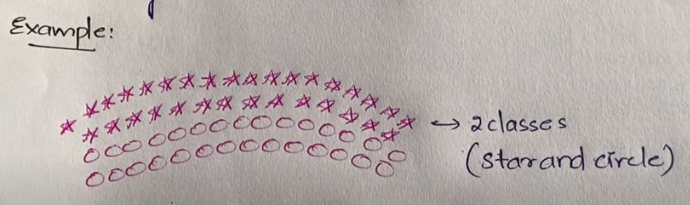 Example:
→ 2 classes
(star and circle)